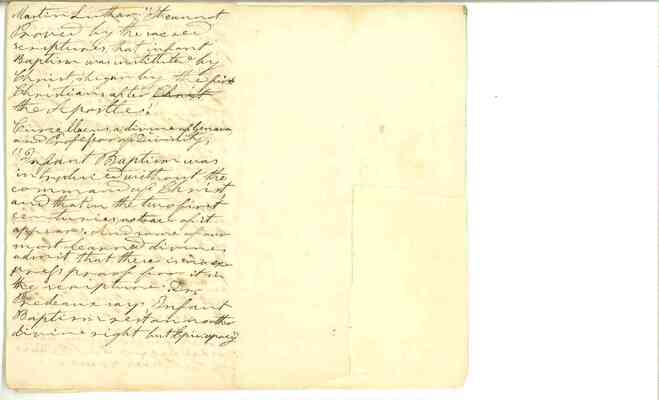 Martin Luther "It cannot
Proved by the sacred
scriptures, that infant
Baptism was institute by
Christ, or began by the first
Christians after Christ
the Apostles".
Curcellaeus a divine of Geneva
and Professor of Divinity;
"Infant Baptism was
introduced without the
command of Christ
and that in the two first
centuries no trace of it
appears. And some of our
most learned divines
admit that there is no ex-
press proof for it in
the scripture. Dr.
Prideaux says Infant
Baptism rests on no other
divine right but Episcopacy